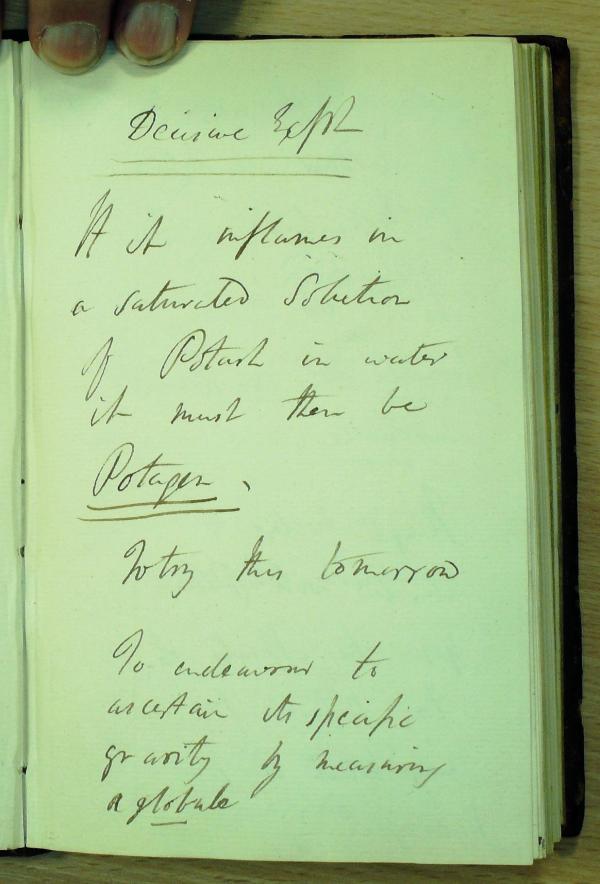 Decisive Expt
If it inflames in
a saturated Solution
of Potash in water
it must then be
Potagen.
To try this tomorrow
To endeavour to
ascertain its specific
gravity by measuring
a globule